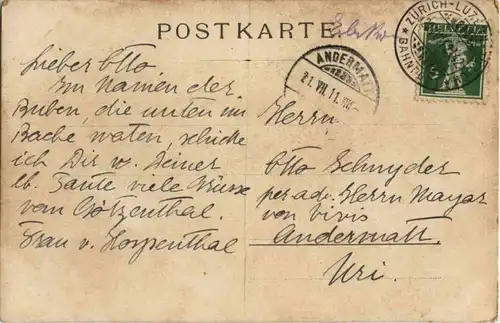 POSTKARTE
ZÜRICH-LUZ
ANDERMATT
21.VII.11.VIII-
Lieber Otto
Im Namen der
Buben, die unten im
Bache waten, schicke
ich Dir v. Deiner
lb. Tante viele Grüsse
vom Götzenthal.
Frau v.
Herrn
Otto Schnyder
per adr. Herrn Mayor
von Vivis
Andermatt.
Uri.